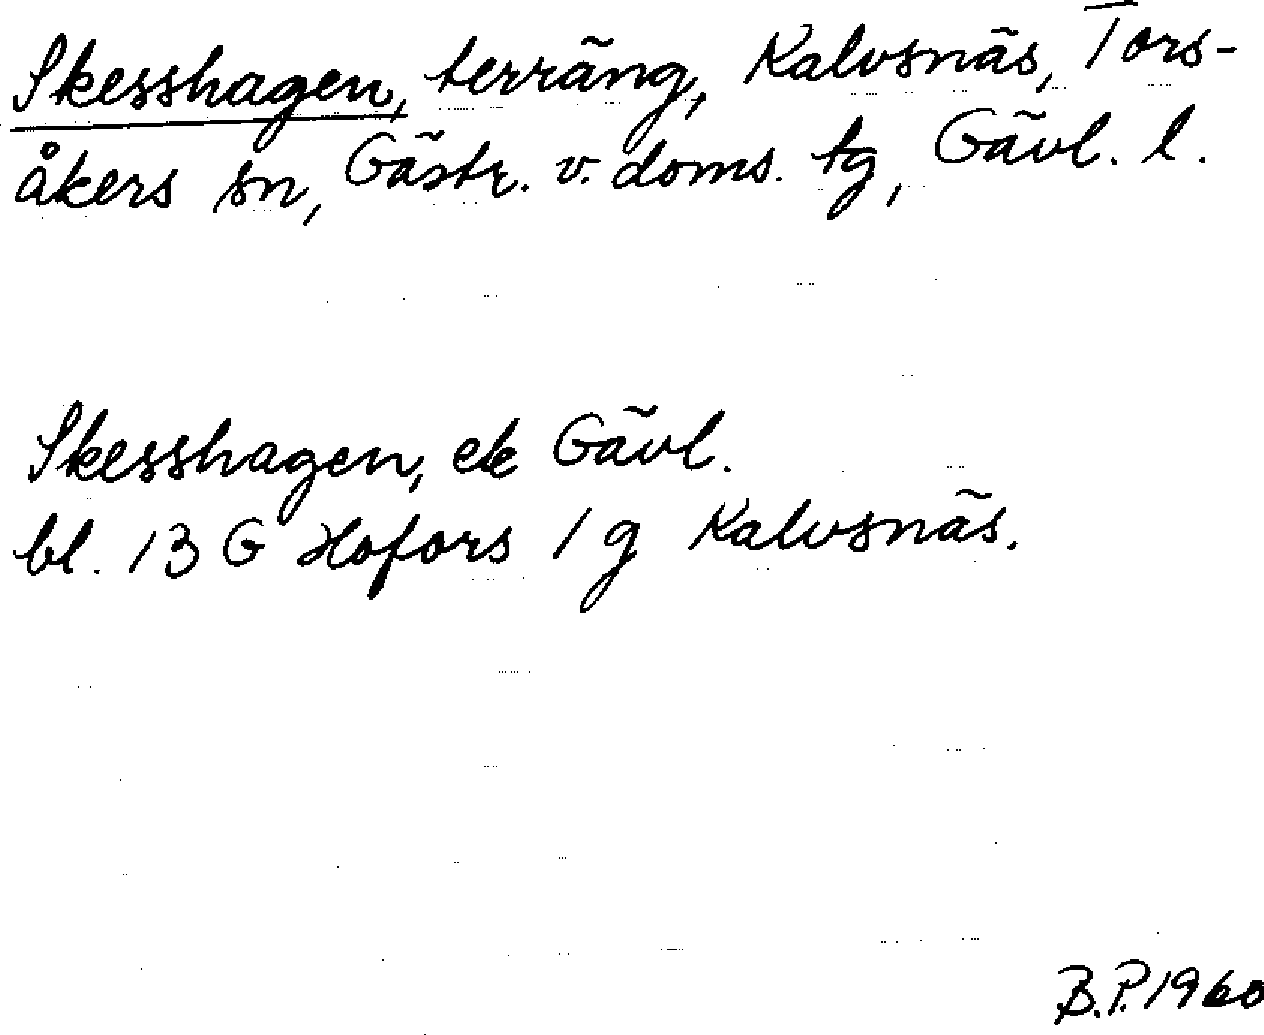 Skesshagen, terräng, Kalvsnäs, Tors-
åkers sn, Gästr. v. doms. tg, Gävl. l.
Skesshagen, ek Gävl.
bl. 13 G Hofors 1 g Kalvsnäs.
B.P. 1960